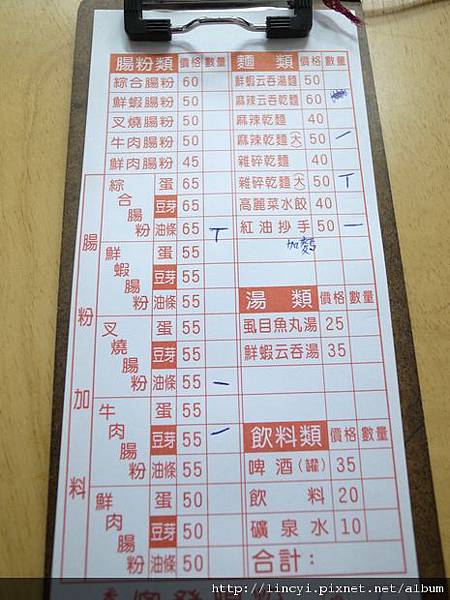 腸粉類 價格 數量
綜合腸粉 60
鮮蝦腸粉 50
叉燒腸粉 50
牛肉腸粉 50
鮮肉腸粉 45
腸粉加料
綜合腸粉
蛋 65
豆芽 65
油條 65 T
鮮蝦腸粉
蛋 55
豆芽 55
油條 55
叉燒腸粉
蛋 55
豆芽 55
油條 55 一
牛肉腸粉
蛋 55
豆芽 55 一
油條 55
鮮肉腸粉
蛋 50
豆芽 50
油條 50
麵類 價格 數量
鮮蝦云吞湯麵 50
麻辣云吞乾麵 60
麻辣乾麵 40
麻辣乾麵(大) 50 一
雜碎乾麵 40
雜碎乾麵(大) 50 T
高麗菜水餃 40
紅油抄手 50 一
加麵
湯類 價格 數量
虱目魚丸湯 25
鮮蝦云吞湯 35
飲料類 價格 數量
啤酒(罐) 35
飲料 20
礦泉水 10
合計:
http://lincyi.pixnet.net/album